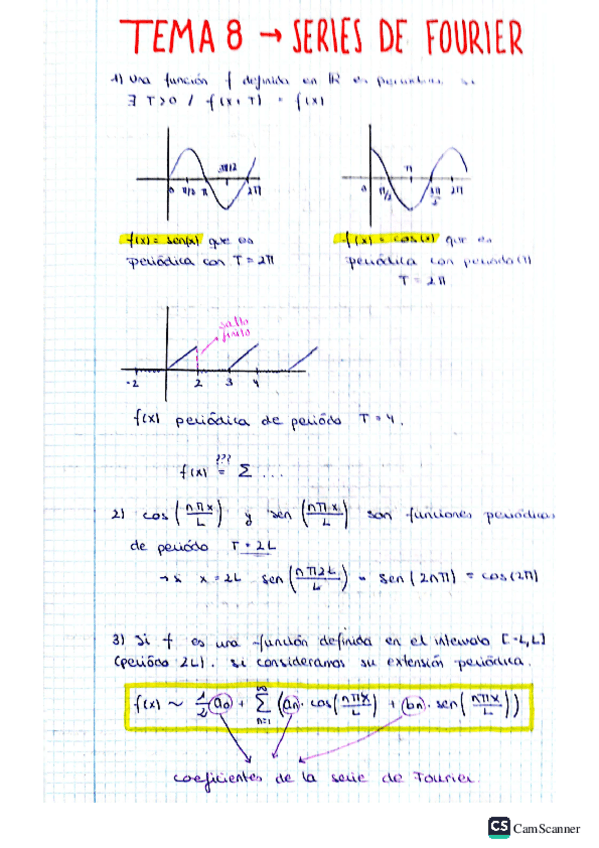 TEMA 8 → SERIES DE FOURIER
1) Una función f definida en ℝ es periódica si
∃ T>0 / f(x+T) = f(x)
0 π/2 π 3π/2 2π
0 π/2 π 3π/2 2π
f(x) = sen(x) que es
periódica con T = 2π
f(x) = cos(x) que es
periódica con periodo (T)
T = 2π
salto
finito
-2 2 3 4
f(x) periódica de periódo T = 4.
???
f(x) = Σ ...
2) cos (nπx/L) y sen (nπx/L) son funciones periódicas
de periódo T = 2L
→ si x = 2L sen (nπ2L/L) = sen (2nπ) = cos(2π)
3) Si f es una función definida en el intervalo [-L,L]
(periódo 2L). Si consideramos su extensión periódica.
f(x) ~ 1/2 a₀ + Σ n=1 ∞ (an · cos(nπx/L) + bn · sen (nπx/L))
coeficientes de la serie de Fourier.
CS CamScanner